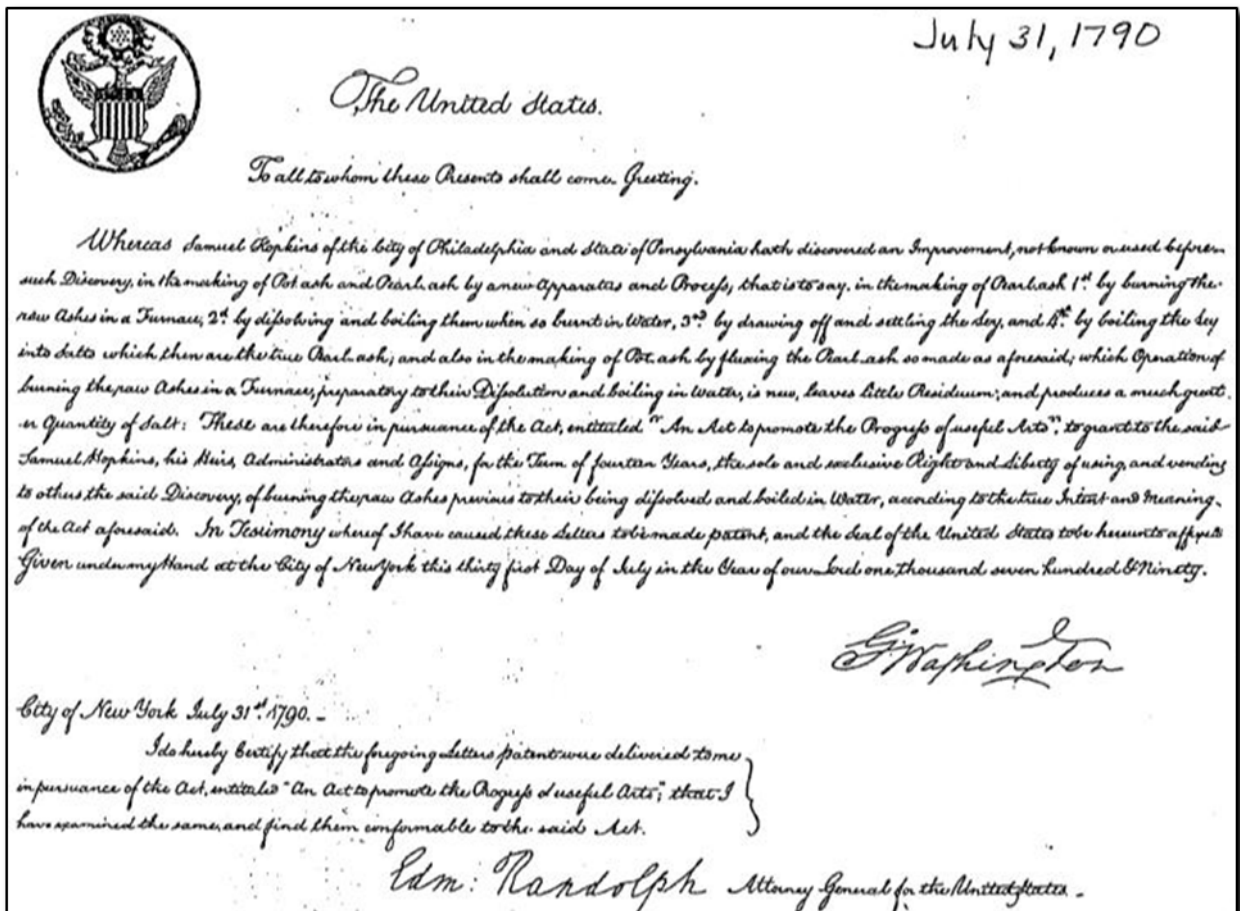 July 31, 1790
The United States.
To all to whom these Presents shall come. Greeting.
Whereas Samuel Hopkins of the City of Philadelphia and State of Pensylvania hath discovered an Improvement, not known or used before
such Discovery, in the making of Pot ash and Pearl ash by a new Apparatus and Process; that is to say, in the making of Pearl ash 1st. by burning the
raw Ashes in a Furnace, 2d. by dissolving and boiling them when so burnt in Water, 3rd. by drawing off and settling the Ley, and 4th. by boiling the Ley
into Salts which then are the true Pearl ash; and also in the making of Pot ash by fluxing the Pearl ash so made as aforesaid; which Operation of
burning the raw Ashes in a Furnace, preparatory to their Dissolution and boiling in Water, is new, leaves little Residuum; and produces a much great
er Quantity of Salt: These are therefore in pursuance of the Act, entituled "An Act to promote the Progress of useful Arts", to grant to the said
Samuel Hopkins, his Heirs, Administrators and Assigns, for the Term of fourteen Years, the sole and exclusive Right and Liberty of using, and vending
to others the said Discovery, of burning the raw Ashes previous to their being dissolved and boiled in Water, according to the true Intent and Meaning
of the Act aforesaid. In Testimony whereof I have caused these Letters to be made patent, and the Seal of the United States to be hereunto affixed
Given under my Hand at the City of New York this thirty first Day of July in the Year of our Lord one thousand seven hundred & Ninety.
G Washington
City of New York July 31st. 1790. -
I do hereby Certify that the foregoing Letters patent were delivered to me
in pursuance of the Act, entituled "An Act to promote the Progress of useful Arts"; that I
have examined the same, and find them conformable to the said Act.
Edm: Randolph Attorney General for the United States. -